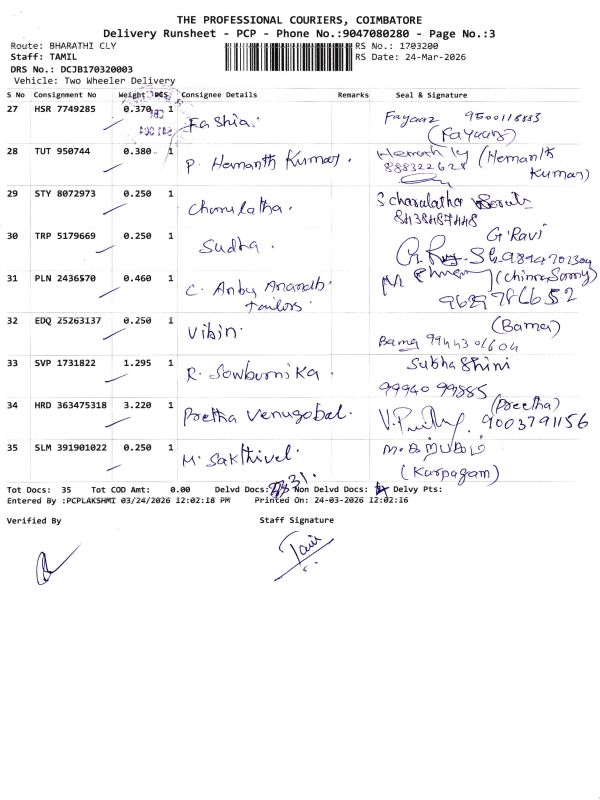 THE PROFESSIONAL COURIERS, COIMBATORE
Delivery Runsheet - PCP - Phone No.:9047080280 - Page No.:3
Route: BHARATHI CLY
RS No.: 1703200
Staff: TAMIL
RS Date: 24-Mar-2026
DRS No.: DCJB170320003
Vehicle: Two Wheeler Delivery
S No Consignment No Weight PCS Consignee Details Remarks Seal & Signature
27 HSR 7749285 0.370 1 Fashia. Fayaaz 9500118883
(Fayaaz)
28 TUT 950744 0.380 1 P. Hemanth Kumar. (Hemanth
Kumar)
888322628
29 STY 8072973 0.250 1 Charulatha. S charulatha
8438487448
30 TRP 5179669 0.250 1 Sudha. G. Ravi
31 PLN 2436570 0.460 1 C. Anbu Anandh.
tailors.
9629786652
32 EDQ 25263137 0.250 1 Vibin. (Bama)
Bama 9944301604
33 SVP 1731822 1.295 1 R. Sowburnika. Subhashini
99940 99885
34 HRD 363475318 3.220 1 Preetha Venugobal. (Preetha)
9003791156
35 SLM 391901022 0.250 1 M. Sakthivel. ம.கற்பகம்
(Karpagam)
Tot Docs: 35 Tot COD Amt: 0.00 Delvd Docs: 31. Non Delvd Docs: Delvy Pts:
Entered By :PCPLAKSHMI 03/24/2026 12:02:18 PM Printed On: 24-03-2026 12:02:16
Verified By Staff Signature